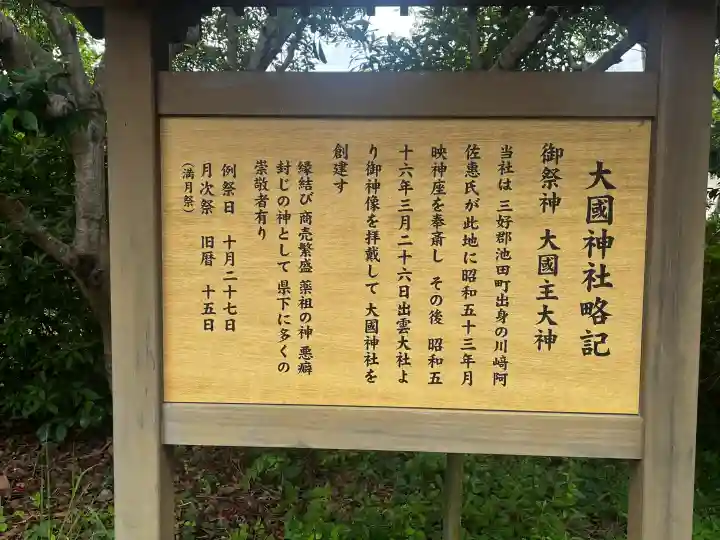 大國神社略記
御祭神 大國主大神
当社は 三好郡池田町出身の川﨑阿
佐惠氏が此地に昭和五十三年月
映神座を奉斎し その後 昭和五
十六年三月二十六日出雲大社よ
り御神像を拝戴して 大國神社を
創建す
縁結び 商売繁盛 薬祖の神 悪癖
封じの神として 県下に多くの
崇敬者有り
例祭日 十月二十七日
月次祭 旧暦 十五日
(満月祭)